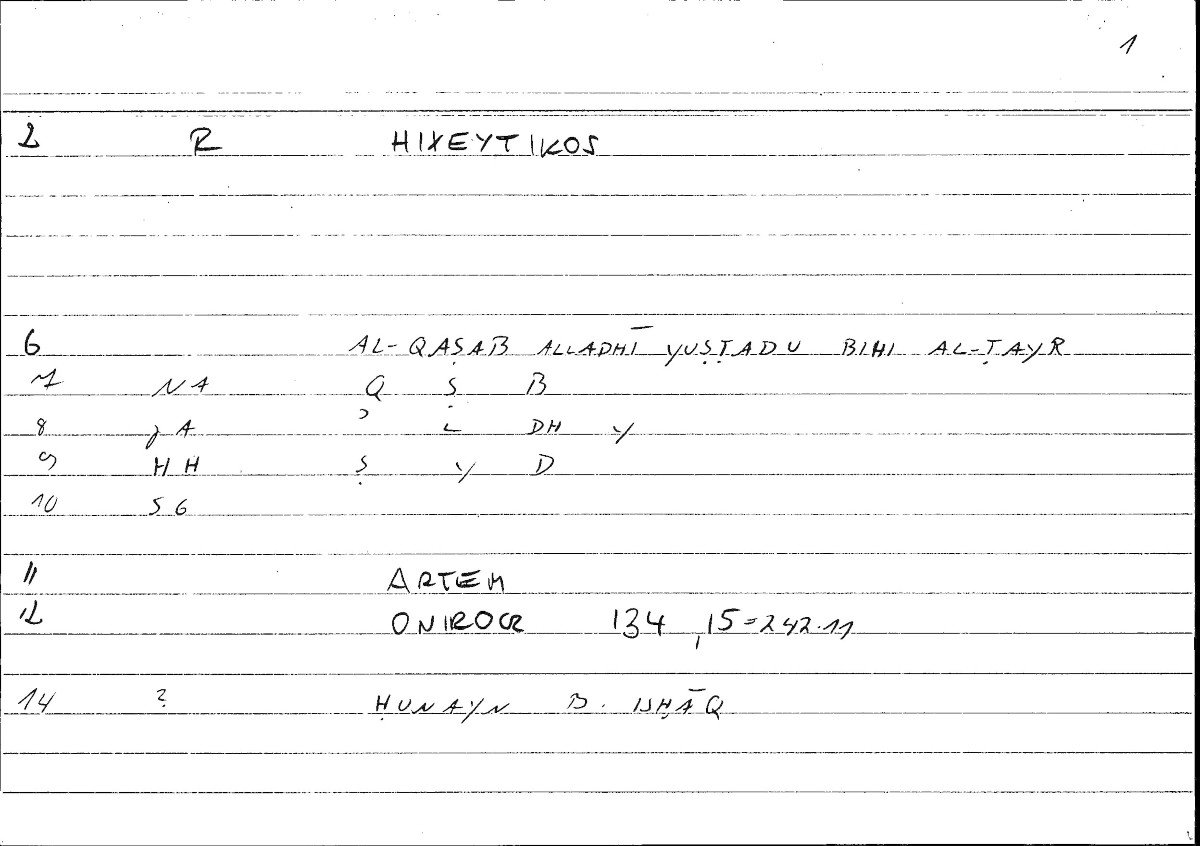 1
2 R HIXEYTIKOS
6 AL-QAṢAB ALLADHĪ YUṢṬADU BIHI AL-ṬAYR
7 NA Q Ṣ B
8 ʾ L DH Y
9 HH Ṣ Y D
10 SG
11 ARTEM
12 ONIROCR 134,15=242.11
14 ? ḤUNAYN B. ISḤĀQ